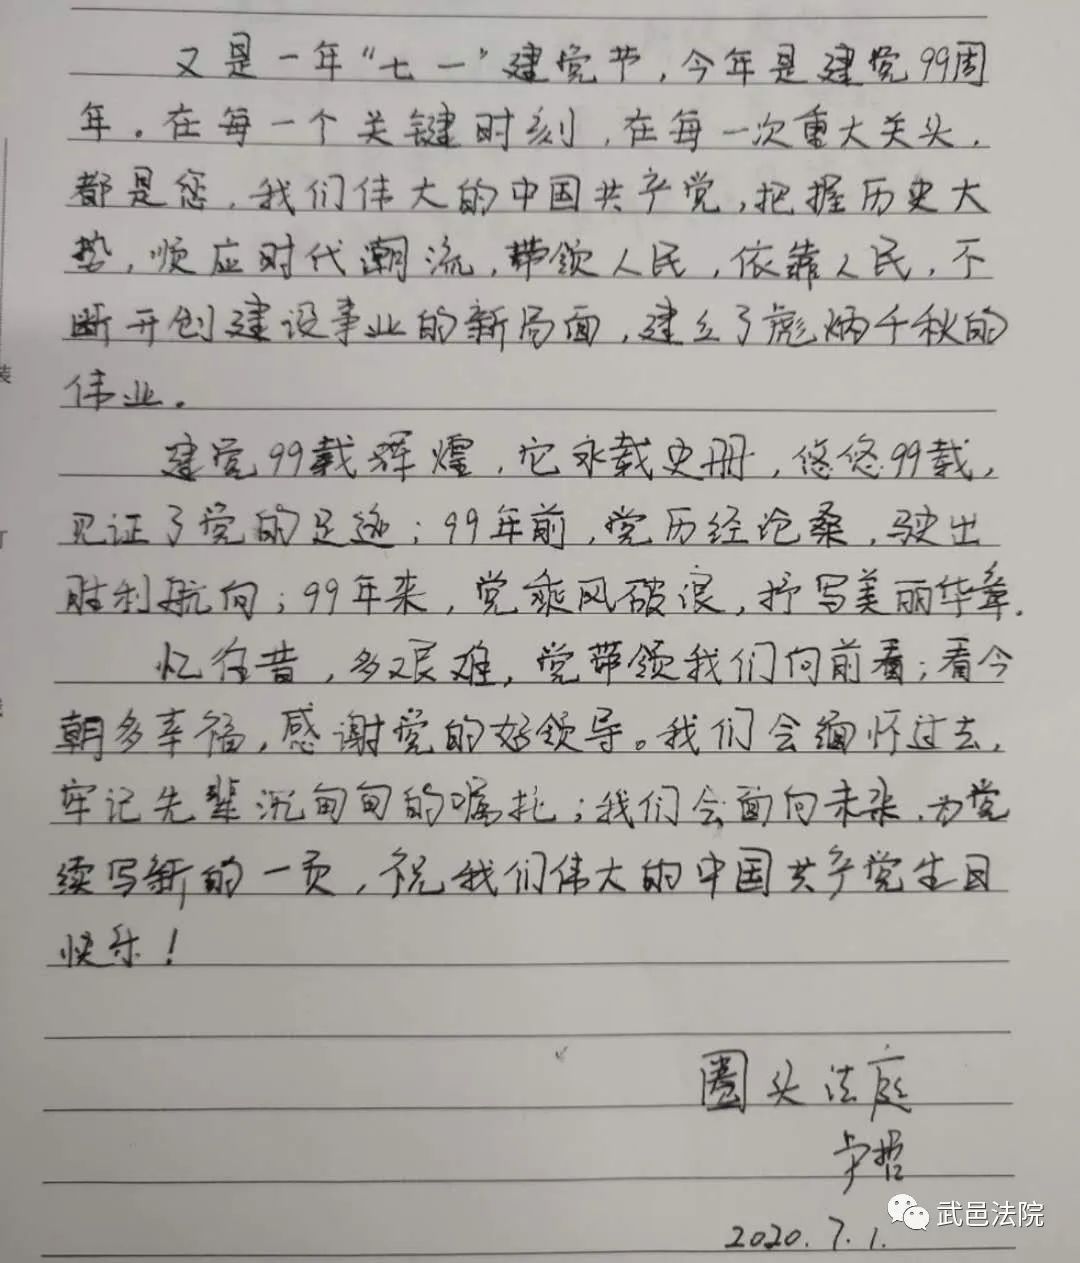 又是一年“七一”建党节，今年是建党99周
年。在每一个关键时刻，在每一次重大关头，
都是您，我们伟大的中国共产党，把握历史大
势，顺应时代潮流，带领人民，依靠人民，不
断开创建设事业的新局面，建立了彪炳千秋的
伟业。
建党99载辉煌，它永载史册，悠悠99载，
见证了党的足迹；99年前，党历经沧桑，驶出
胜利航向；99年来，党乘风破浪，抒写美丽华章。
忆往昔，多艰难，党带领我们向前看；看今
朝多幸福，感谢党的好领导。我们会缅怀过去，
牢记先辈沉甸甸的嘱托；我们会面向未来，为党
续写新的一页，祝我们伟大的中国共产党生日
快乐！
圈头法庭
卢哲
2020.7.1.
武邑法院
装